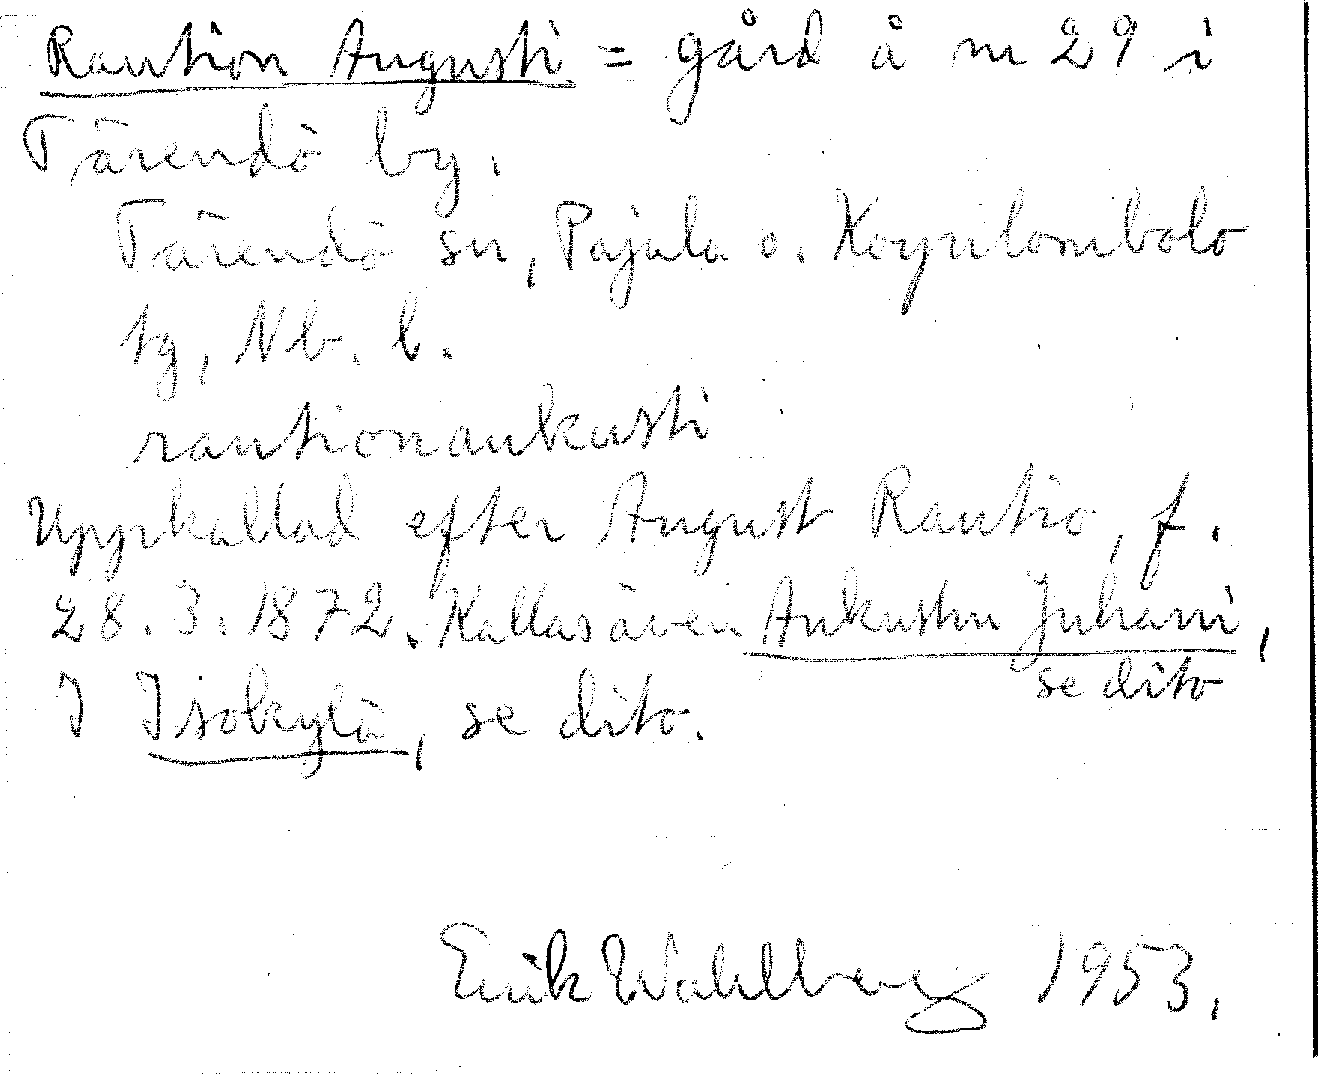 Raution Augusti = gård å nr 29 i
Tärendö by.
Tärendö sn, Pajala o. Korpilombolo
tg, Nb. l.
rautionaukusti
Uppkallad efter August Rautio, f.
28.3.1872. Kallas även Aukustin Juhani,
se dito
I Isokylä, se dito.
Erik Wahlberg 1953.